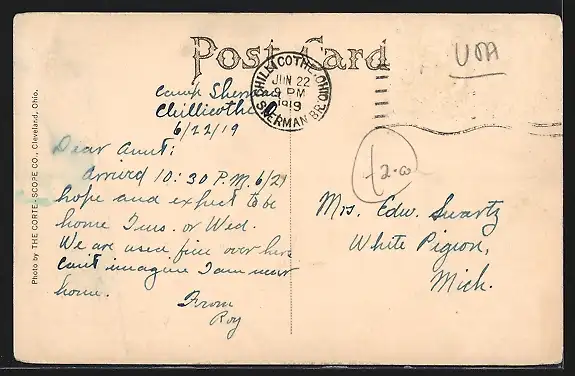 Post Card
CHILLICOTHE, OHIO
JUN 22
9 PM
1919
SHERMAN BR.
USA
2.00
Camp Sherman
Chillicothe O.
6/22/19
Dear Aunt:
Arrived 10:30 P.M. 6/21
hope and expect to be
home Tues. or Wed.
We are used fine over here
can't imagine I am near
home.
From
Roy
Mrs. Edw. Swartz
White Pigeon,
Mich.
Photo by THE CORTE-SCOPE CO., Cleveland, Ohio.